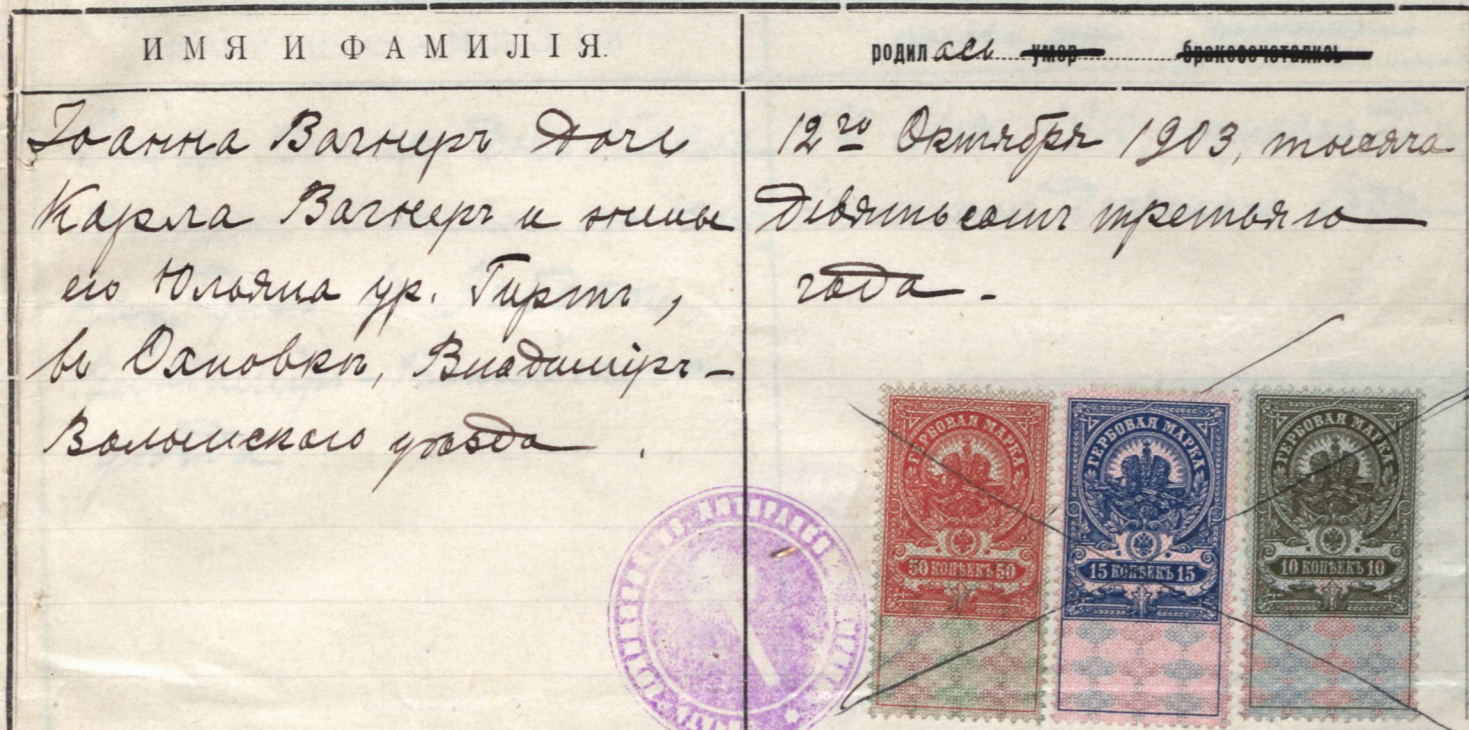 ИМЯ И ФАМИЛІЯ.
родилась умер бракосочетались
Іоанна Вагнеръ дочь
Карла Вагнеръ и жены
его Юльяна ур. Гиртъ,
въ Охновкѣ, Владиміръ-
Волынскаго уѣзда.
12го Октября 1903, тысяча
девятьсотъ третьяго
года.
ГЕРБОВАЯ МАРКА
50 КОПѢЕКЪ 50
ГЕРБОВАЯ МАРКА
15 КОПѢЕКЪ 15
ГЕРБОВАЯ МАРКА
10 КОПѢЕКЪ 10